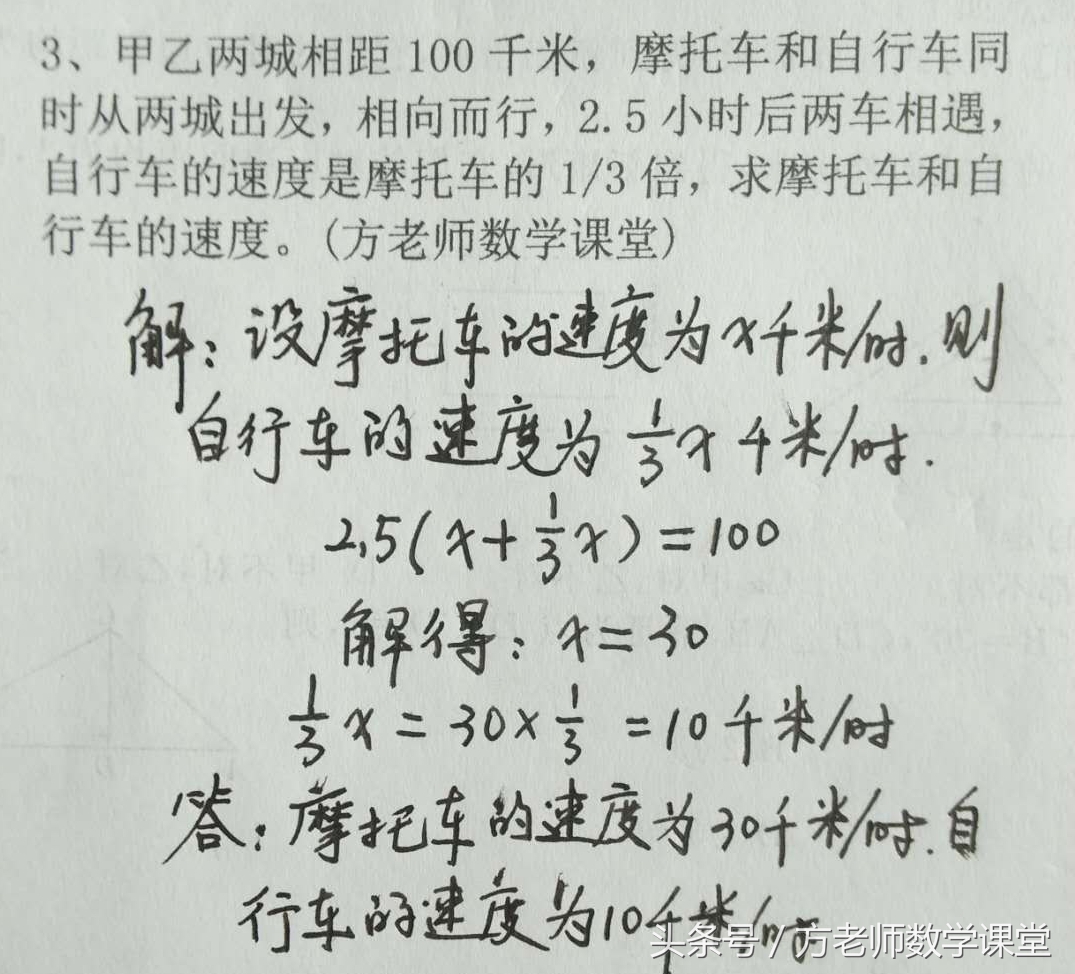 3、甲乙两城相距 100 千米，摩托车和自行车同
时从两城出发，相向而行，2.5 小时后两车相遇，
自行车的速度是摩托车的 1/3 倍，求摩托车和自
行车的速度。(方老师数学课堂)
解：设摩托车的速度为x千米/时．则
自行车的速度为 1/3 x 千米/时．
2.5(x+1/3x)=100
解得：x=30
1/3 x = 30×1/3 =10千米/时
答：摩托车的速度为30千米/时．自
行车的速度为10千米/时
头条号 / 方老师数学课堂